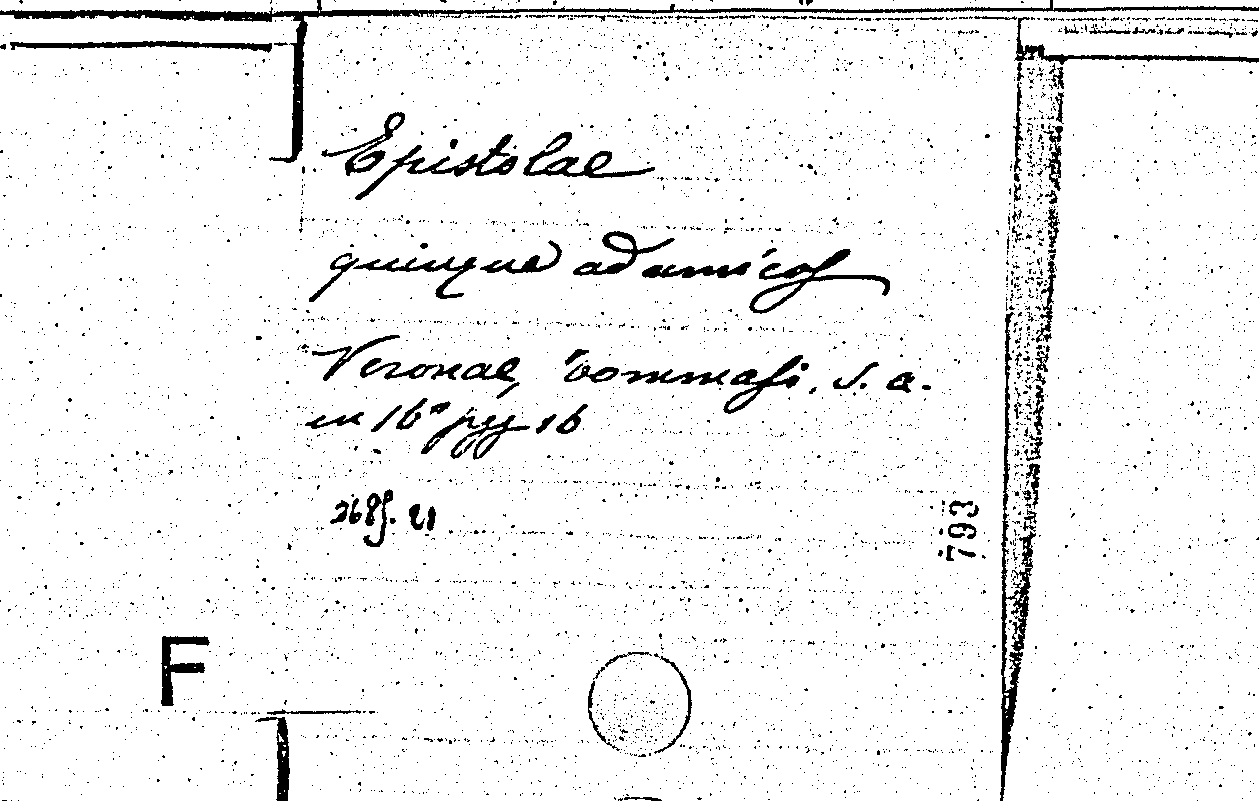 Epistolae
quinque ad amicos
Veronae, Tommasi, S. a.
in 16° pg 16
268f. 21
793
F